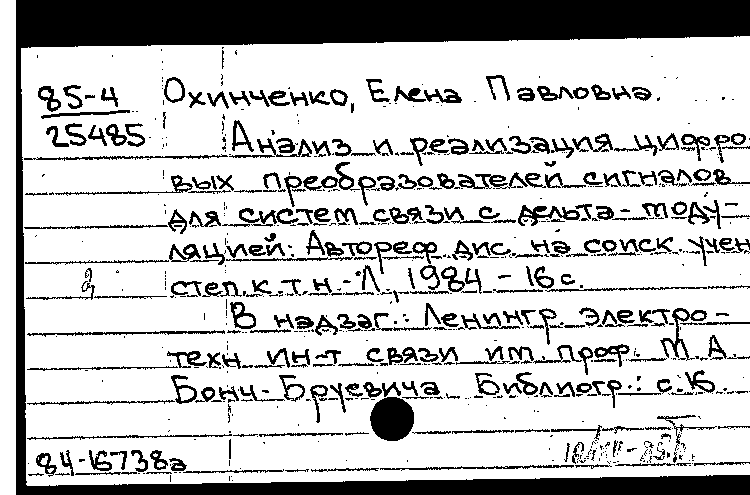 85-4 Охинченко, Елена Павловна.
25485 Анализ и реализация цифро-
вых преобразователей сигналов
для систем связи с дельта-моду-
ляцией: Автореф. дис. на соиск. учен.
степ. к.т.н. - Л., 1984 - 16 с.
В надзаг.: Ленингр. электро-
техн. ин-т связи им. проф. М.А.
Бонч-Бруевича. Библиогр.: с.16.
84-16738а